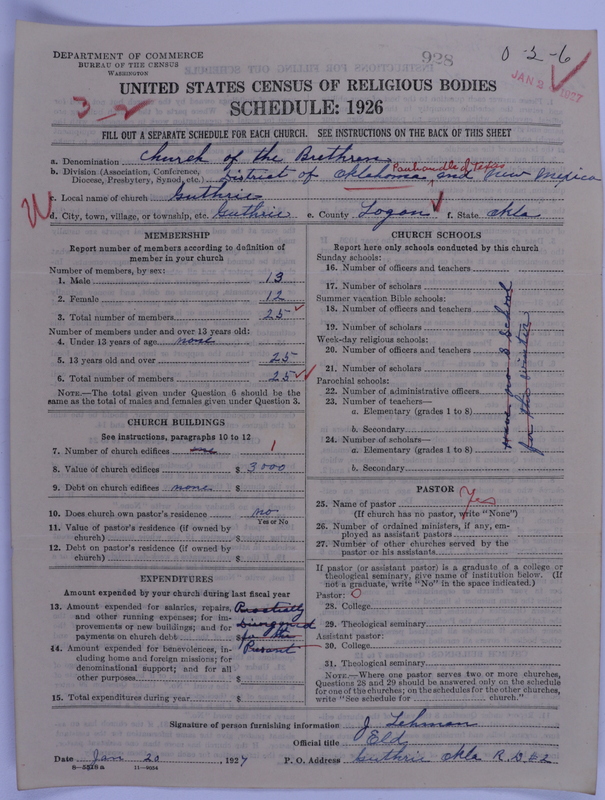 DEPARTMENT OF COMMERCE
BUREAU OF THE CENSUS
WASHINGTON
928
0-2-6
JAN 2 1927
UNITED STATES CENSUS OF RELIGIOUS BODIES
3-2
SCHEDULE: 1926
FILL OUT A SEPARATE SCHEDULE FOR EACH CHURCH. SEE INSTRUCTIONS ON THE BACK OF THIS SHEET
a. Denomination Church of the Brethren
Panhandle of Texas
b. Division (Association, Conference, Diocese, Presbytery, Synod, etc.) District of Oklahoma, and New Mexico
c. Local name of church Guthrie
d. City, town, village, or township, etc. Guthrie e. County Logan f. State Okla
MEMBERSHIP
Report number of members according to definition of
member in your church
Number of members, by sex:
1. Male 13
2. Female 12
3. Total number of members 25
Number of members under and over 13 years old:
4. Under 13 years of age none
5. 13 years old and over 25
6. Total number of members 25
NOTE.—The total given under Question 6 should be
same as the total of males and females given under Question 3.
CHURCH BUILDINGS
See instructions, paragraphs 10 to 12
7. Number of church edifices one 1
8. Value of church edifices $ 3000
9. Debt on church edifices none $
10. Does church own pastor's residence no
Yes or No
11. Value of pastor's residence (if owned by
church) $
12. Debt on pastor's residence (if owned by
church) $
EXPENDITURES
Amount expended by your church during last fiscal year
13. Amount expended for salaries, repairs,
and other running expenses; for im-
provements or new buildings; and for
payments on church debt $
Practically
for the
Present
14. Amount expended for benevolences, in-
cluding home and foreign missions; for
denominational support; and for all
other purposes $
15. Total expenditures during year $
CHURCH SCHOOLS
Report here only schools conducted by this church
Sunday schools:
16. Number of officers and teachers
17. Number of scholars
Summer vacation Bible schools:
18. Number of officers and teachers
19. Number of scholars
Week-day religious schools:
20. Number of officers and teachers
21. Number of scholars
Parochial schools:
22. Number of administrative officers
23. Number of teachers—
a. Elementary (grades 1 to 8)
b. Secondary
24. Number of scholars—
a. Elementary (grades 1 to 8)
b. Secondary
S School
for the winter
PASTOR
25. Name of pastor Yes
(If church has no pastor, write "None")
26. Number of ordained ministers, if any, em-
ployed as assistant pastors
27. Number of other churches served by the
pastor or his assistants
If pastor (or assistant pastor) is a graduate of a college or
theological seminary, give name of institution below. (If
not a graduate, write "No" in the space indicated.)
Pastor: O
28. College
29. Theological seminary
Assistant pastor:
30. College
31. Theological seminary
NOTE.—Where one pastor serves two or more churches,
Questions 28 and 29 should be answered only on the schedule
for one of the churches; on the schedules for the other churches,
write "See schedule for church."
Signature of person furnishing information J Lehman
Official title Eld
Date Jan 20, 1927 P. O. Address Guthrie Okla R.D#2
8-5518 a 11-9034